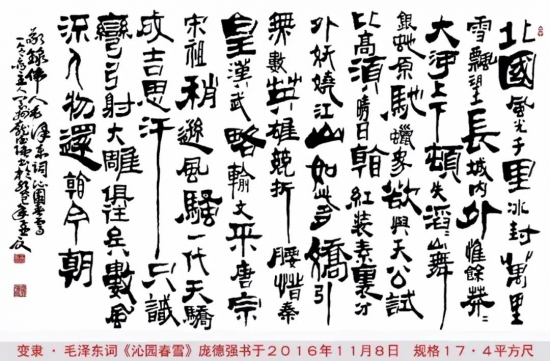 北國風光千里冰封萬里
雪飄望長城内外惟餘莽〻
大河上下頓失滔〻山舞
銀蛇原馳蠟象欲與天公試
比高須晴日看紅裝素裹分
外妖嬈江山如此多嬌引
無數英雄競折腰惜秦
皇漢武略輸文采唐宗
宋祖稍遜風騷一代天驕
成吉思汗只識
彎弓射大雕俱往矣數風
流人物還看今朝
敬錄偉人毛澤東詞沁園春雪
变隶·毛泽东词《沁园春雪》庞德强书于2016年11月8日 规格17·4平方尺